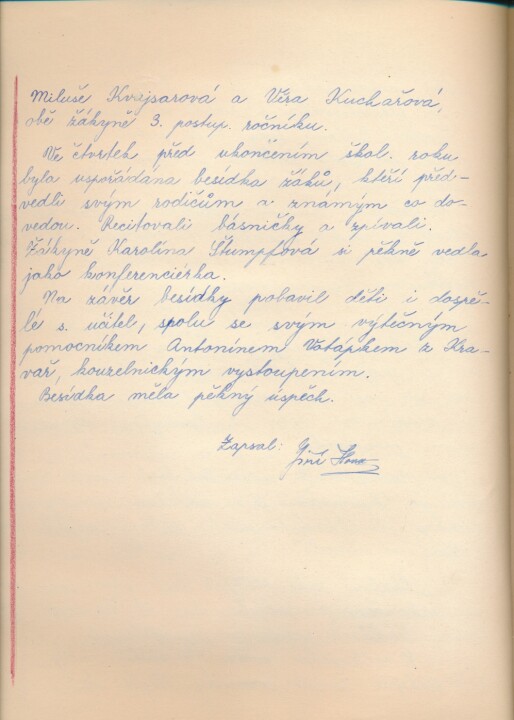 Miluše Kvajsarová a Věra Kuchařová,
obě žákyně 3. postup. ročníku.
Ve čtvrtek před ukončením škol. roku
byla uspořádána besídka žáků, kteří před-
vedli svým rodičům a známým co do-
vedou. Recitovali básničky a zpívali.
Žákyně Karolína Štumpfová si pěkně vedla
jako konferenciérka.
Na závěr besídky pobavil děti i dospě-
lé s. učitel, spolu se svým výtečným
pomocníkem Antonínem Vatápkem z Kra-
vař, kouzelnickým vystoupením.
Besídka měla pěkný úspěch.
Zapsal: Jiří